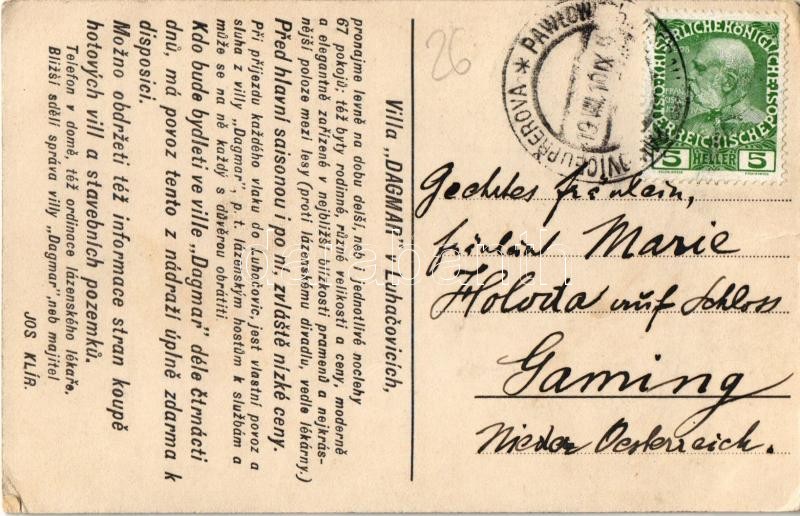 Villa „DAGMAR" v Luhačovicích,
pronajme levně na dobu delší, neb i jednotlivé noclehy
67 pokojů; též byty rodinné, různé velikosti a ceny, moderně
a elegantně zařízené v nejbližší blízkosti pramenů a nejkrás-
nější poloze mezi lesy (proti lázenskému divadlu, vedle lékárny.)
Před hlavní saisonou i po ní, zvláště nízké ceny.
Při příjezdu každého vlaku do Luhačovic, jest vlastní povoz a
sluha z villy „Dagmar", p. t. lázenským hostům k službám a
může se na ně každý s důvěrou obrátiti.
Kdo bude bydleti ve ville „Dagmar" déle čtrnácti
dnů, má povoz tento z nádraží úplně zdarma k
disposici.
Možno obdržeti též informace stran koupě
hotových vill a stavebních pozemků.
Telefon v domě, též ordinace lázenského lékaře.
Bližší sdělí správa villy „Dagmar", neb majitel
JOS KLÍR.
26
5 HELLER 5
Geehrtes Fräulein,
Fräulein Marie
Holoda auf Schloss
Gaming
Nieder Oesterreich.
darabanth